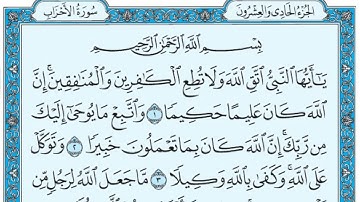 سُورَةُ الأَحْزَابِ
الجُزْءُ الحَادِي وَالعِشْرُونَ
بِسْمِ ٱللَّهِ ٱلرَّحْمَٰنِ ٱلرَّحِيمِ
يَٰٓأَيُّهَا ٱلنَّبِيُّ ٱتَّقِ ٱللَّهَ وَلَا تُطِعِ ٱلْكَٰفِرِينَ وَٱلْمُنَٰفِقِينَۗ إِنَّ
ٱللَّهَ كَانَ عَلِيمًا حَكِيمًا ١ وَٱتَّبِعْ مَا يُوحَىٰٓ إِلَيْكَ
مِن رَّبِّكَۚ إِنَّ ٱللَّهَ كَانَ بِمَا تَعْمَلُونَ خَبِيرًا ٢ وَتَوَكَّلْ
عَلَى ٱللَّهِۚ وَكَفَىٰ بِٱللَّهِ وَكِيلًا ٣ مَّا جَعَلَ ٱللَّهُ لِرَجُلٍ مِّن